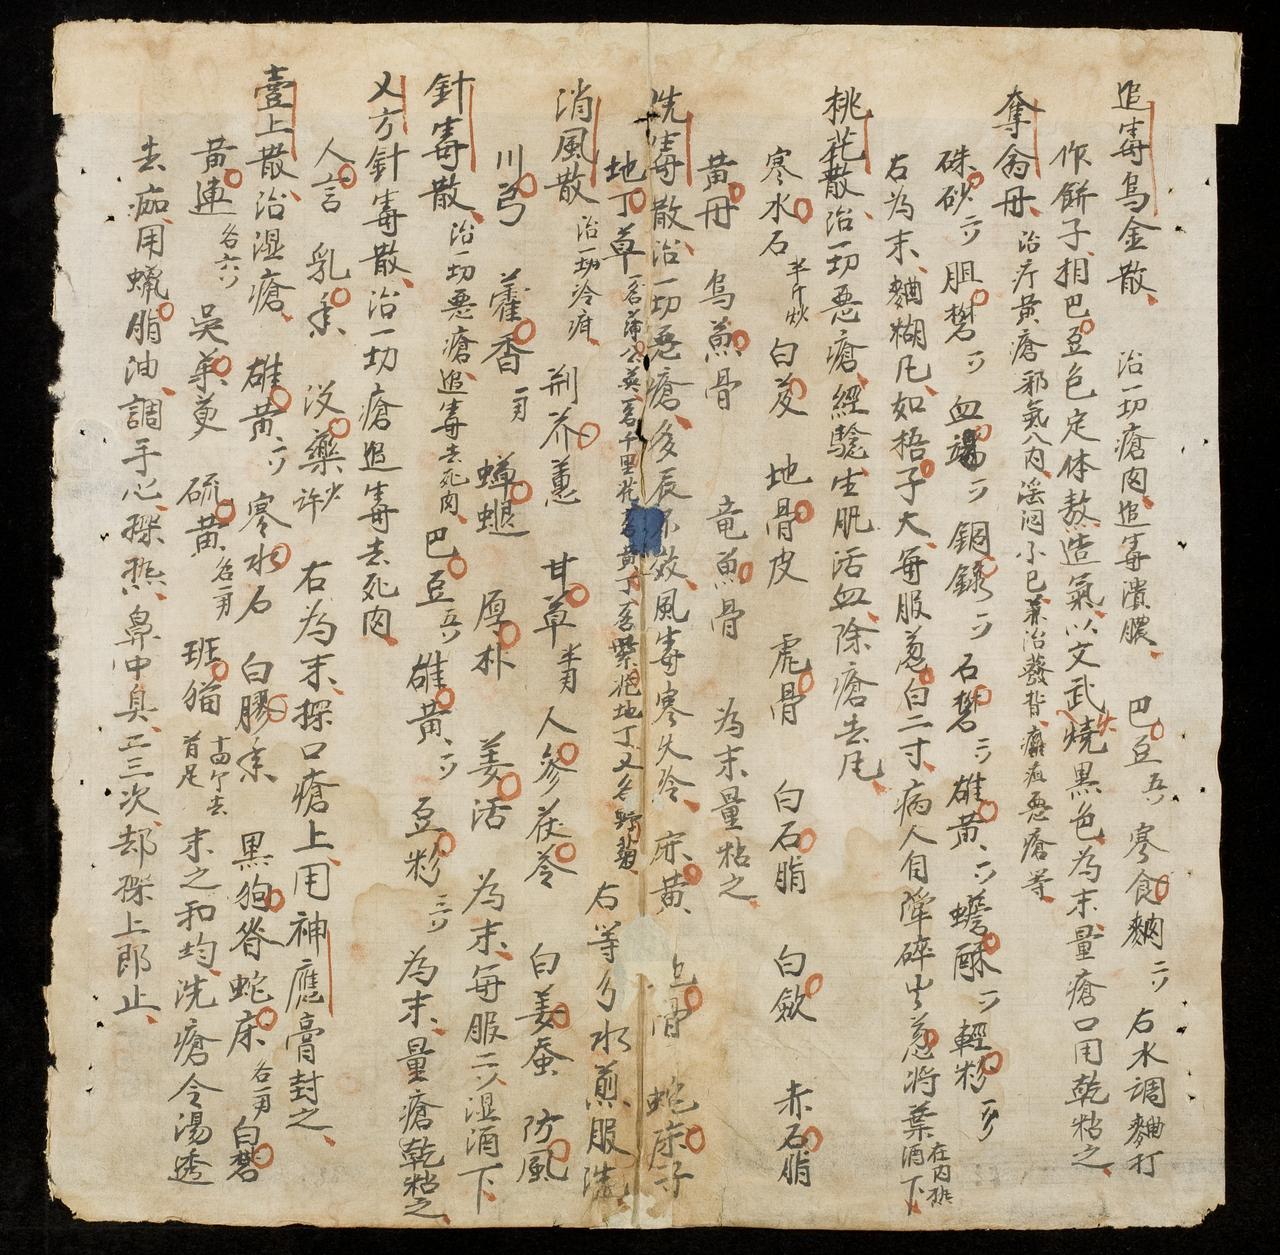 追毒烏金散 治一切瘡肉追毒潰膿 巴豆五分 寒食麪二分 右水調麯打
作餅子相巴豆色定体熬造氣以文武火燒黑色為末量瘡口用乾粘之
奪命丹 治疔黃瘡邪氣入內淫悶不已兼治發背癰疽惡瘡等
硃砂二分 胆礬一分 血竭一分 銅錄一分 石礬二分 雄黃一分 蟾酥一分 輕粉一分
右為末麵糊凡如梧子大每服葱白二寸病人自嚼碎出葱將葉在內挑酒下
桃花散治一切惡瘡經驗生肌活血除瘡去
寒水石半斤炒 白芨 地骨皮 虎骨 白石脂 白斂 赤石脂
黃丹 烏魚骨 竜魚骨 為末量粘之
洗毒散治一切惡瘡後辰不效風毒寒久冷 麻黃 骨 蛇床子
地丁草一名蒲公英 名千里花 名黃丁 名紫花地丁又名野菊 右等分水煎服洗
消風散 治一切冷疳 荆芥蕙 甘草半月 人參茯苓 白姜蚕 防風
川芎 藿香一月 蟬蛻 厚朴 羌活 為末每服二分湿酒下
針毒散 治一切惡瘡追毒去死肉 巴豆五分 雄黃一分 豆粉三分 為末量瘡乾粘之
乂方針毒散治一切瘡追毒去死肉
人言 乳香 沒藥少許 右為末探口瘡上用神應膏封之
壹上散治湿瘡 雄黃二分 寒水石 白膠香 黑狗脊 蛇床各一月 白礬
黃連各六分 吳茱萸 硫黃各一月 班猫十四个去首足 末之和均洗瘡令湯透
去痂用蠟脂油調手心探热鼻中臭二三次却探上郎止